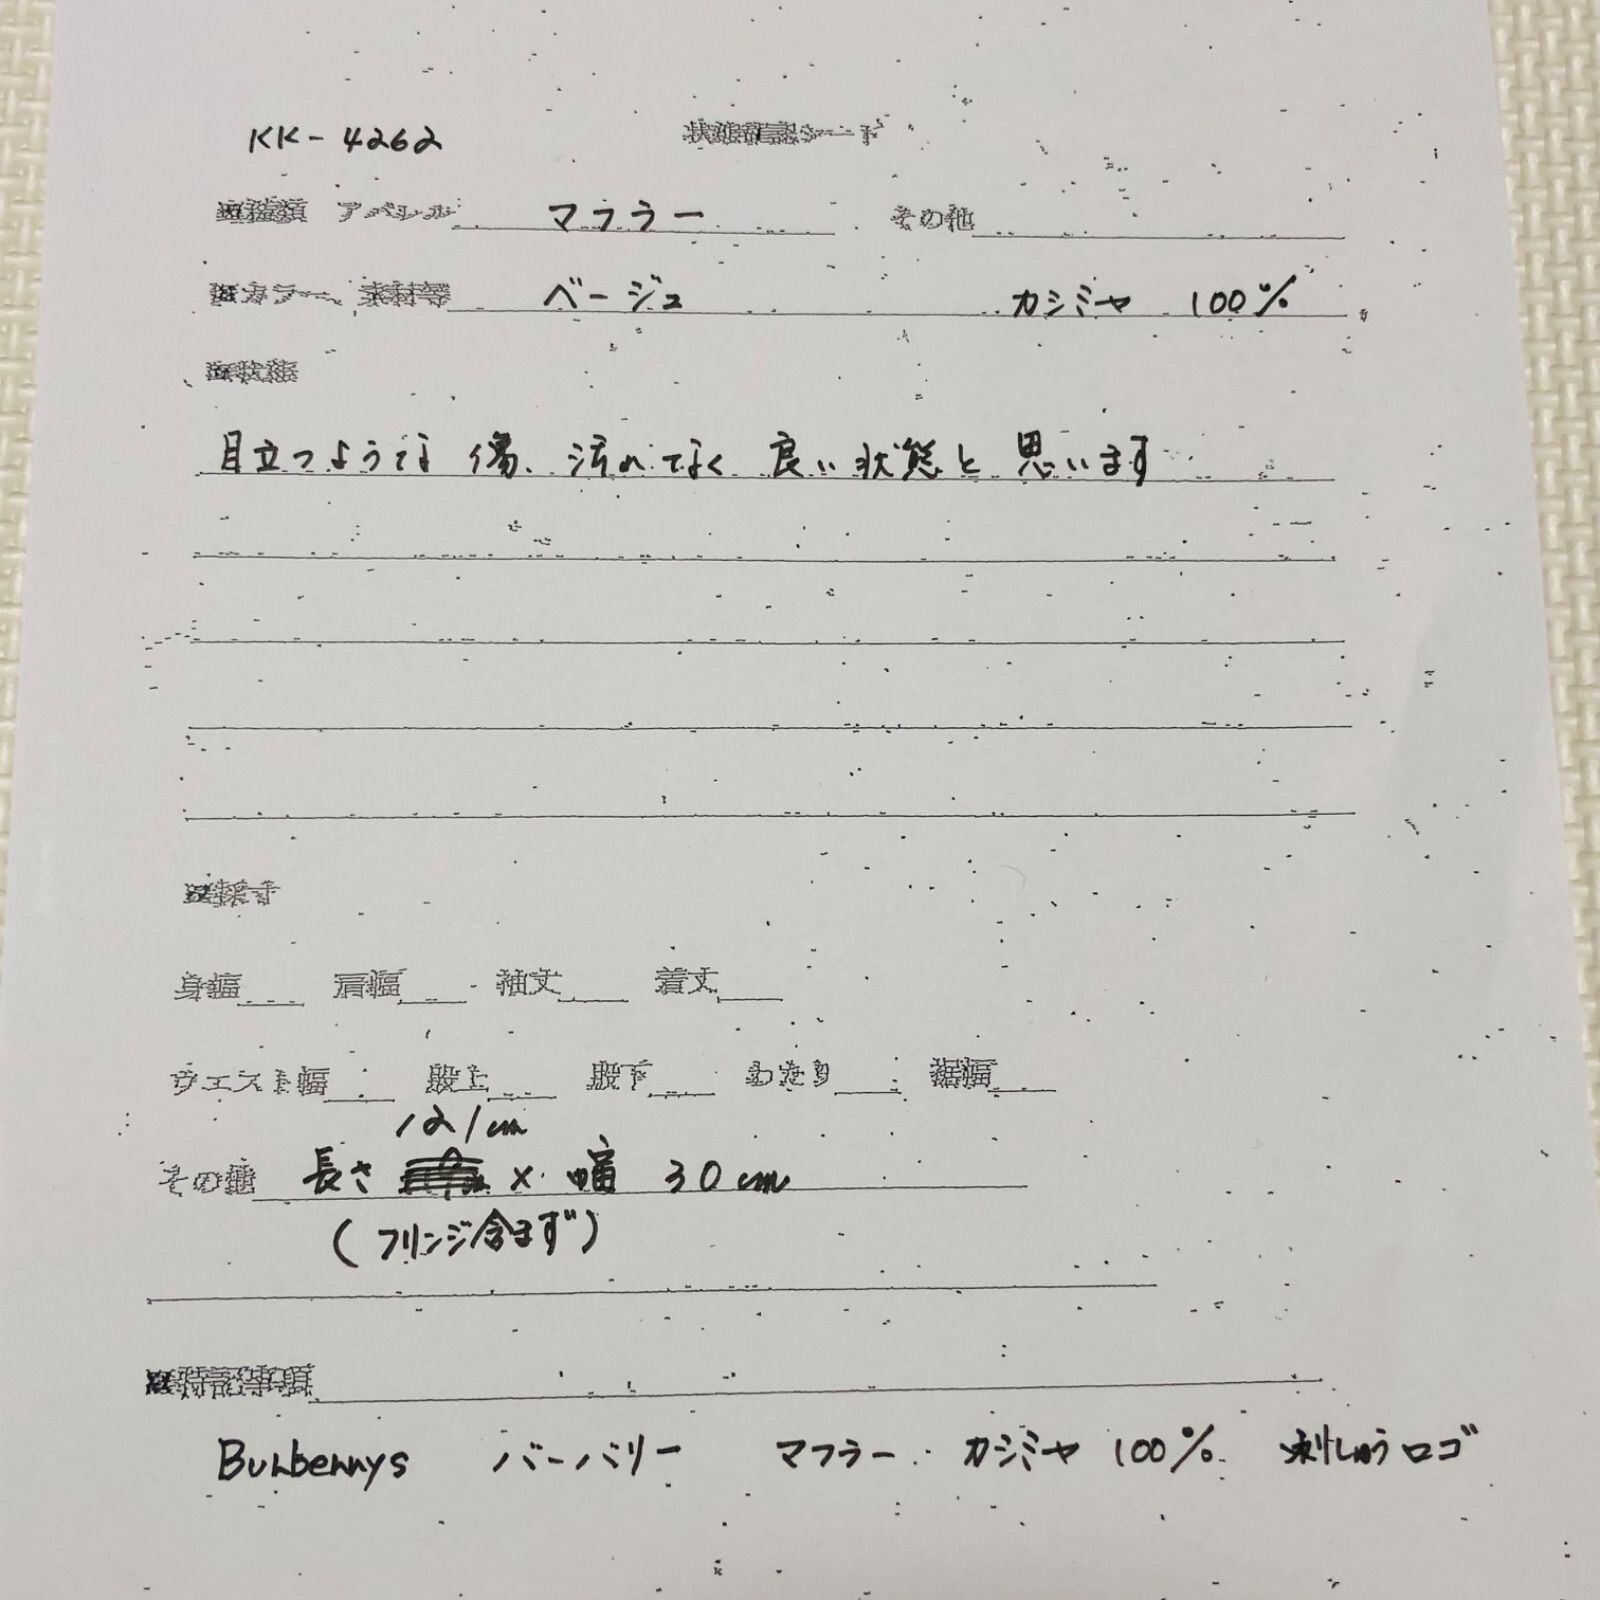 KK-4262 状態確認シート
■種類 アパレル マフラー その他
■カラー、素材等 ベージュ カシミヤ 100%
■状態
目立つような傷、汚れてなく 良い状態と思います
■採寸
身幅 肩幅 袖丈 着丈
ウエスト幅 股上 股下 わたり 裾幅
121cm
その他 長さ × 幅 30cm
(フリンジ含まず)
■特記事項
Burberrys バーバリー マフラー カシミヤ 100% 刺しゅうロゴ